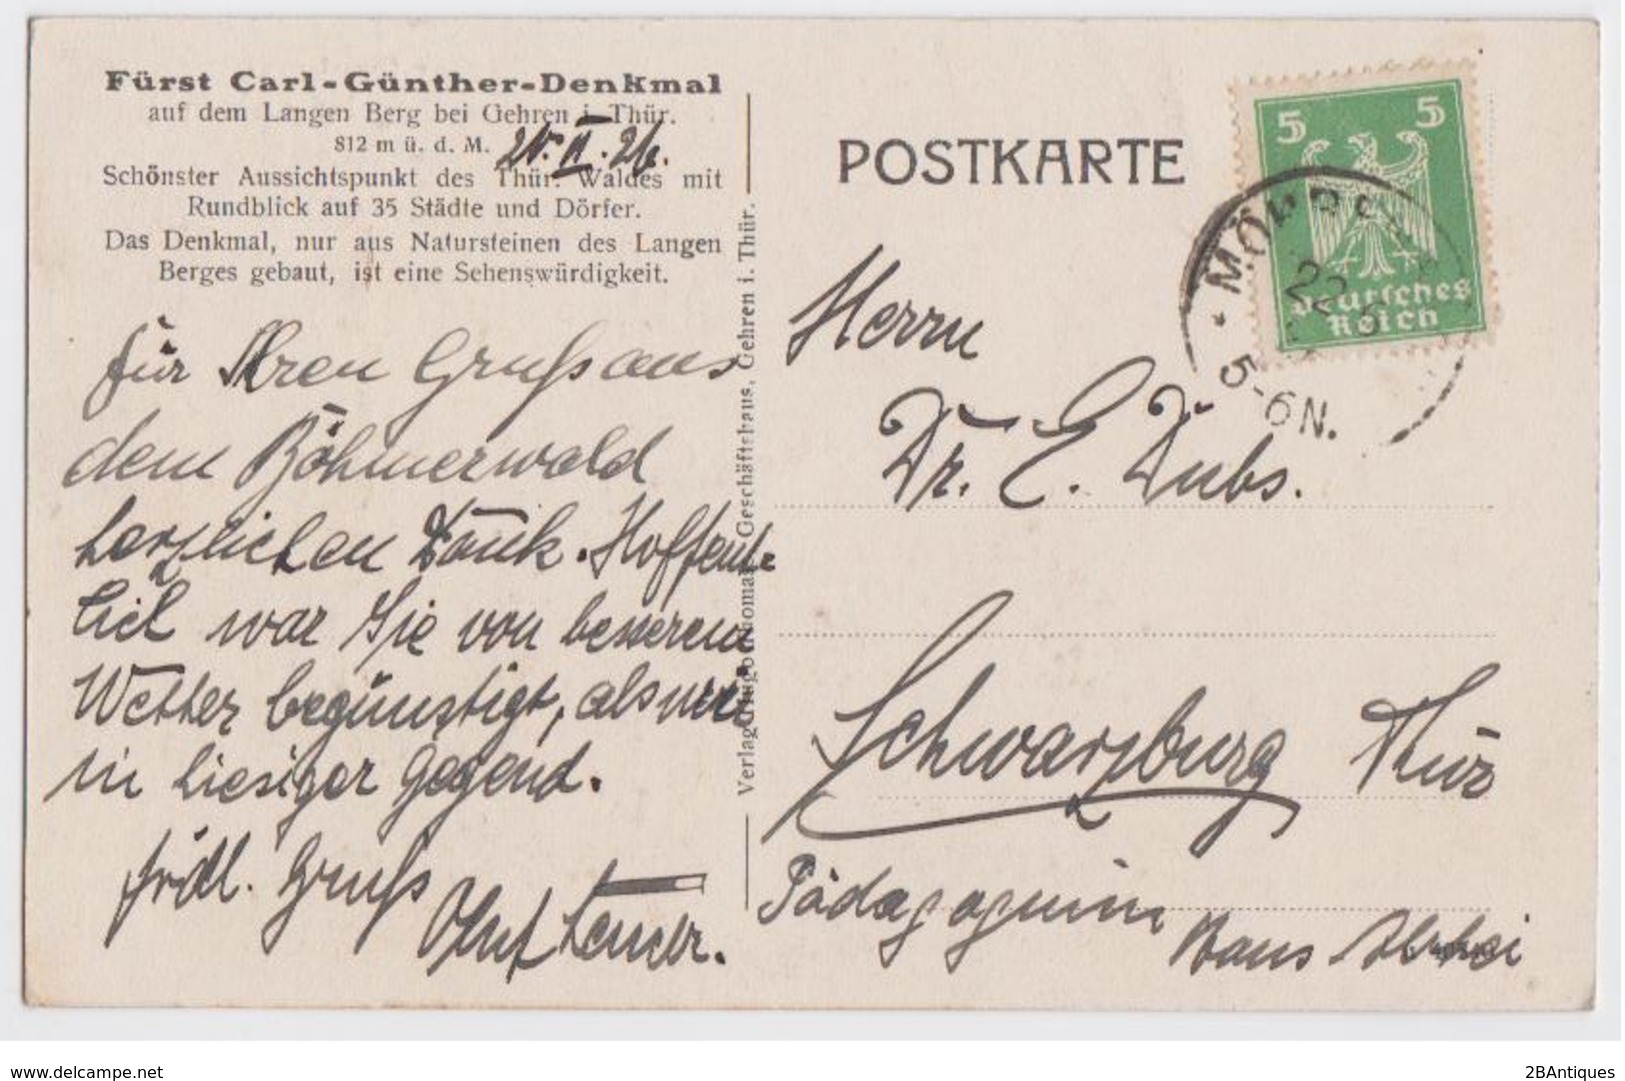 Fürst Carl-Günther-Denkmal
auf dem Langen Berg bei Gehren i. Thür.
812 m ü. d. M.
Schönster Aussichtspunkt des Thür. Waldes mit
Rundblick auf 35 Städte und Dörfer.
Das Denkmal, nur aus Natursteinen des Langen
Berges gebaut, ist eine Sehenswürdigkeit.
für Ihren Gruß aus
dem Böhmerwald
herzlichen Dank. Hoffent-
lich war Sie von besserem
Wetter begünstigt, als wir
in hiesiger Gegend.
frdl. Gruß
Verlag Hugo Thomas, Geschäftshaus, Gehren i. Thür.
POSTKARTE
5 5
Deutsches
Reich
22
5-6 N.
Herrn
Dr. E. Dubs.
Schwarzburg Thür
Pädagogium
Haus
delcampe.net
2BAntiques